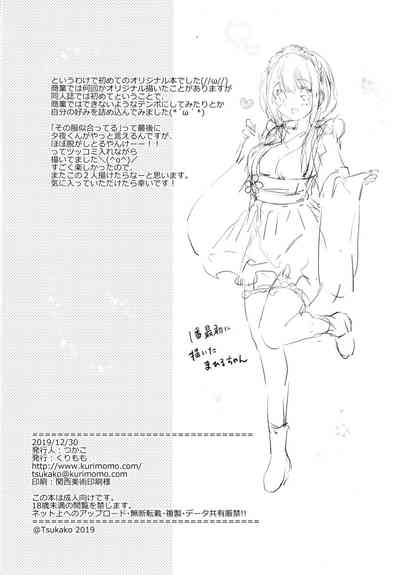 というわけで初めてのオリジナル本でした(//ω//)
商業では何回かオリジナル描いたことがありますが
同人誌では初めてということで、
商業ではできないようなテンポにしてみたりとか
自分の好みを詰め込んでみました(*´ω｀*)
「その服似合ってる」って最後に
夕夜くんがやっと言えるんですが、
ほぼ脱がしとるやんけーー！！
ってツッコミ入れながら
描いてました＼(^o^)／
すごく楽しかったので、
またこの２人描けたらなーと思います。
気に入っていただけたら幸いです！
1番最初に
描いた
まひるちゃん
====================================
2019/12/30
発行人：つかこ
発行：くりもも
http://www.kurimomo.com/
tsukako@kurimomo.com
印刷：関西美術印刷様
この本は成人向けです。
18歳未満の閲覧を禁じます。
ネット上へのアップロード・無断転載・複製・データ共有厳禁!!
====================================
@Tsukako 2019